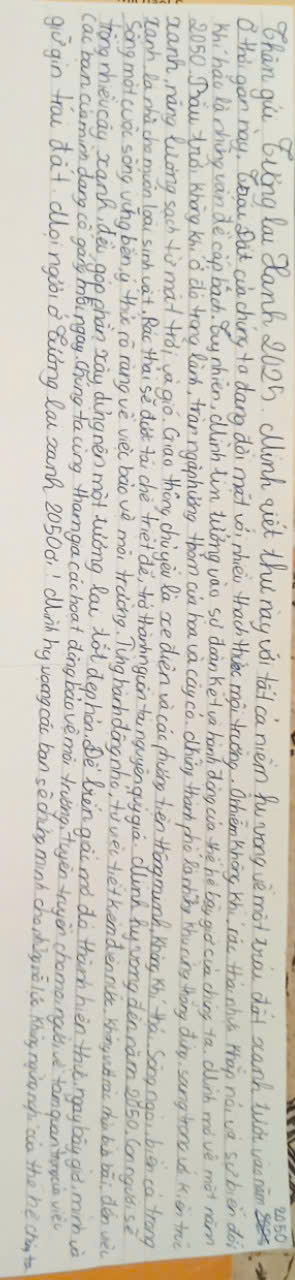 Thân gửi Tương lai Xanh 2025. Mình viết thư này với tất cả niềm hi vọng về một trái đất xanh tươi vào năm 2050
Ở thời gian này, Trái Đất của chúng ta đang đối mặt với nhiều thách thức môi trường. Ô nhiễm không khí, rác thải nhựa khắp nơi và sự biến đổi
khí hậu là những vấn đề cấp bách. Tuy nhiên, Mình tin tưởng vào sự đoàn kết và hành động của thế hệ bây giờ của chúng ta. Mình mơ về một năm
2050. Bầu trời không khí ở đó trong lành, tràn ngập hương thơm của hoa và cây cỏ. Những thành phố là những khu rừng thẳng đứng, sang trọng với kiến trúc
xanh, năng lượng sạch từ mặt trời và gió. Giao thông chủ yếu là xe điện và các phương tiện thông minh không khí thải. Sông ngòi, biển cả trong
xanh là nhà cho muôn loài sinh vật. Rác thải sẽ được tái chế triệt để, trở thành nguồn tài nguyên quý giá. Mình hy vọng đến năm 2050, con người sẽ
sống một cuộc sống vững bền, ý thức rõ ràng về việc bảo vệ môi trường. Từng hành động nhỏ từ việc tiết kiệm điện nước, không vứt rác bừa bãi, đến việc
trồng nhiều cây xanh đều góp phần xây dựng nên một tương lai tốt đẹp hơn. Để biến giấc mơ đó thành hiện thực, ngay bây giờ, mình và
các bạn của mình đang cố gắng mỗi ngày. Chúng ta cùng tham gia các hoạt động bảo vệ môi trường, tuyên truyền cho mọi người về tầm quan trọng của việc
giữ gìn trái đất. Mọi người ở Tương lai xanh 2050 ơi! Mình hy vọng các bạn sẽ chứng minh cho những nỗ lực không ngừng nghỉ của thế hệ chúng ta